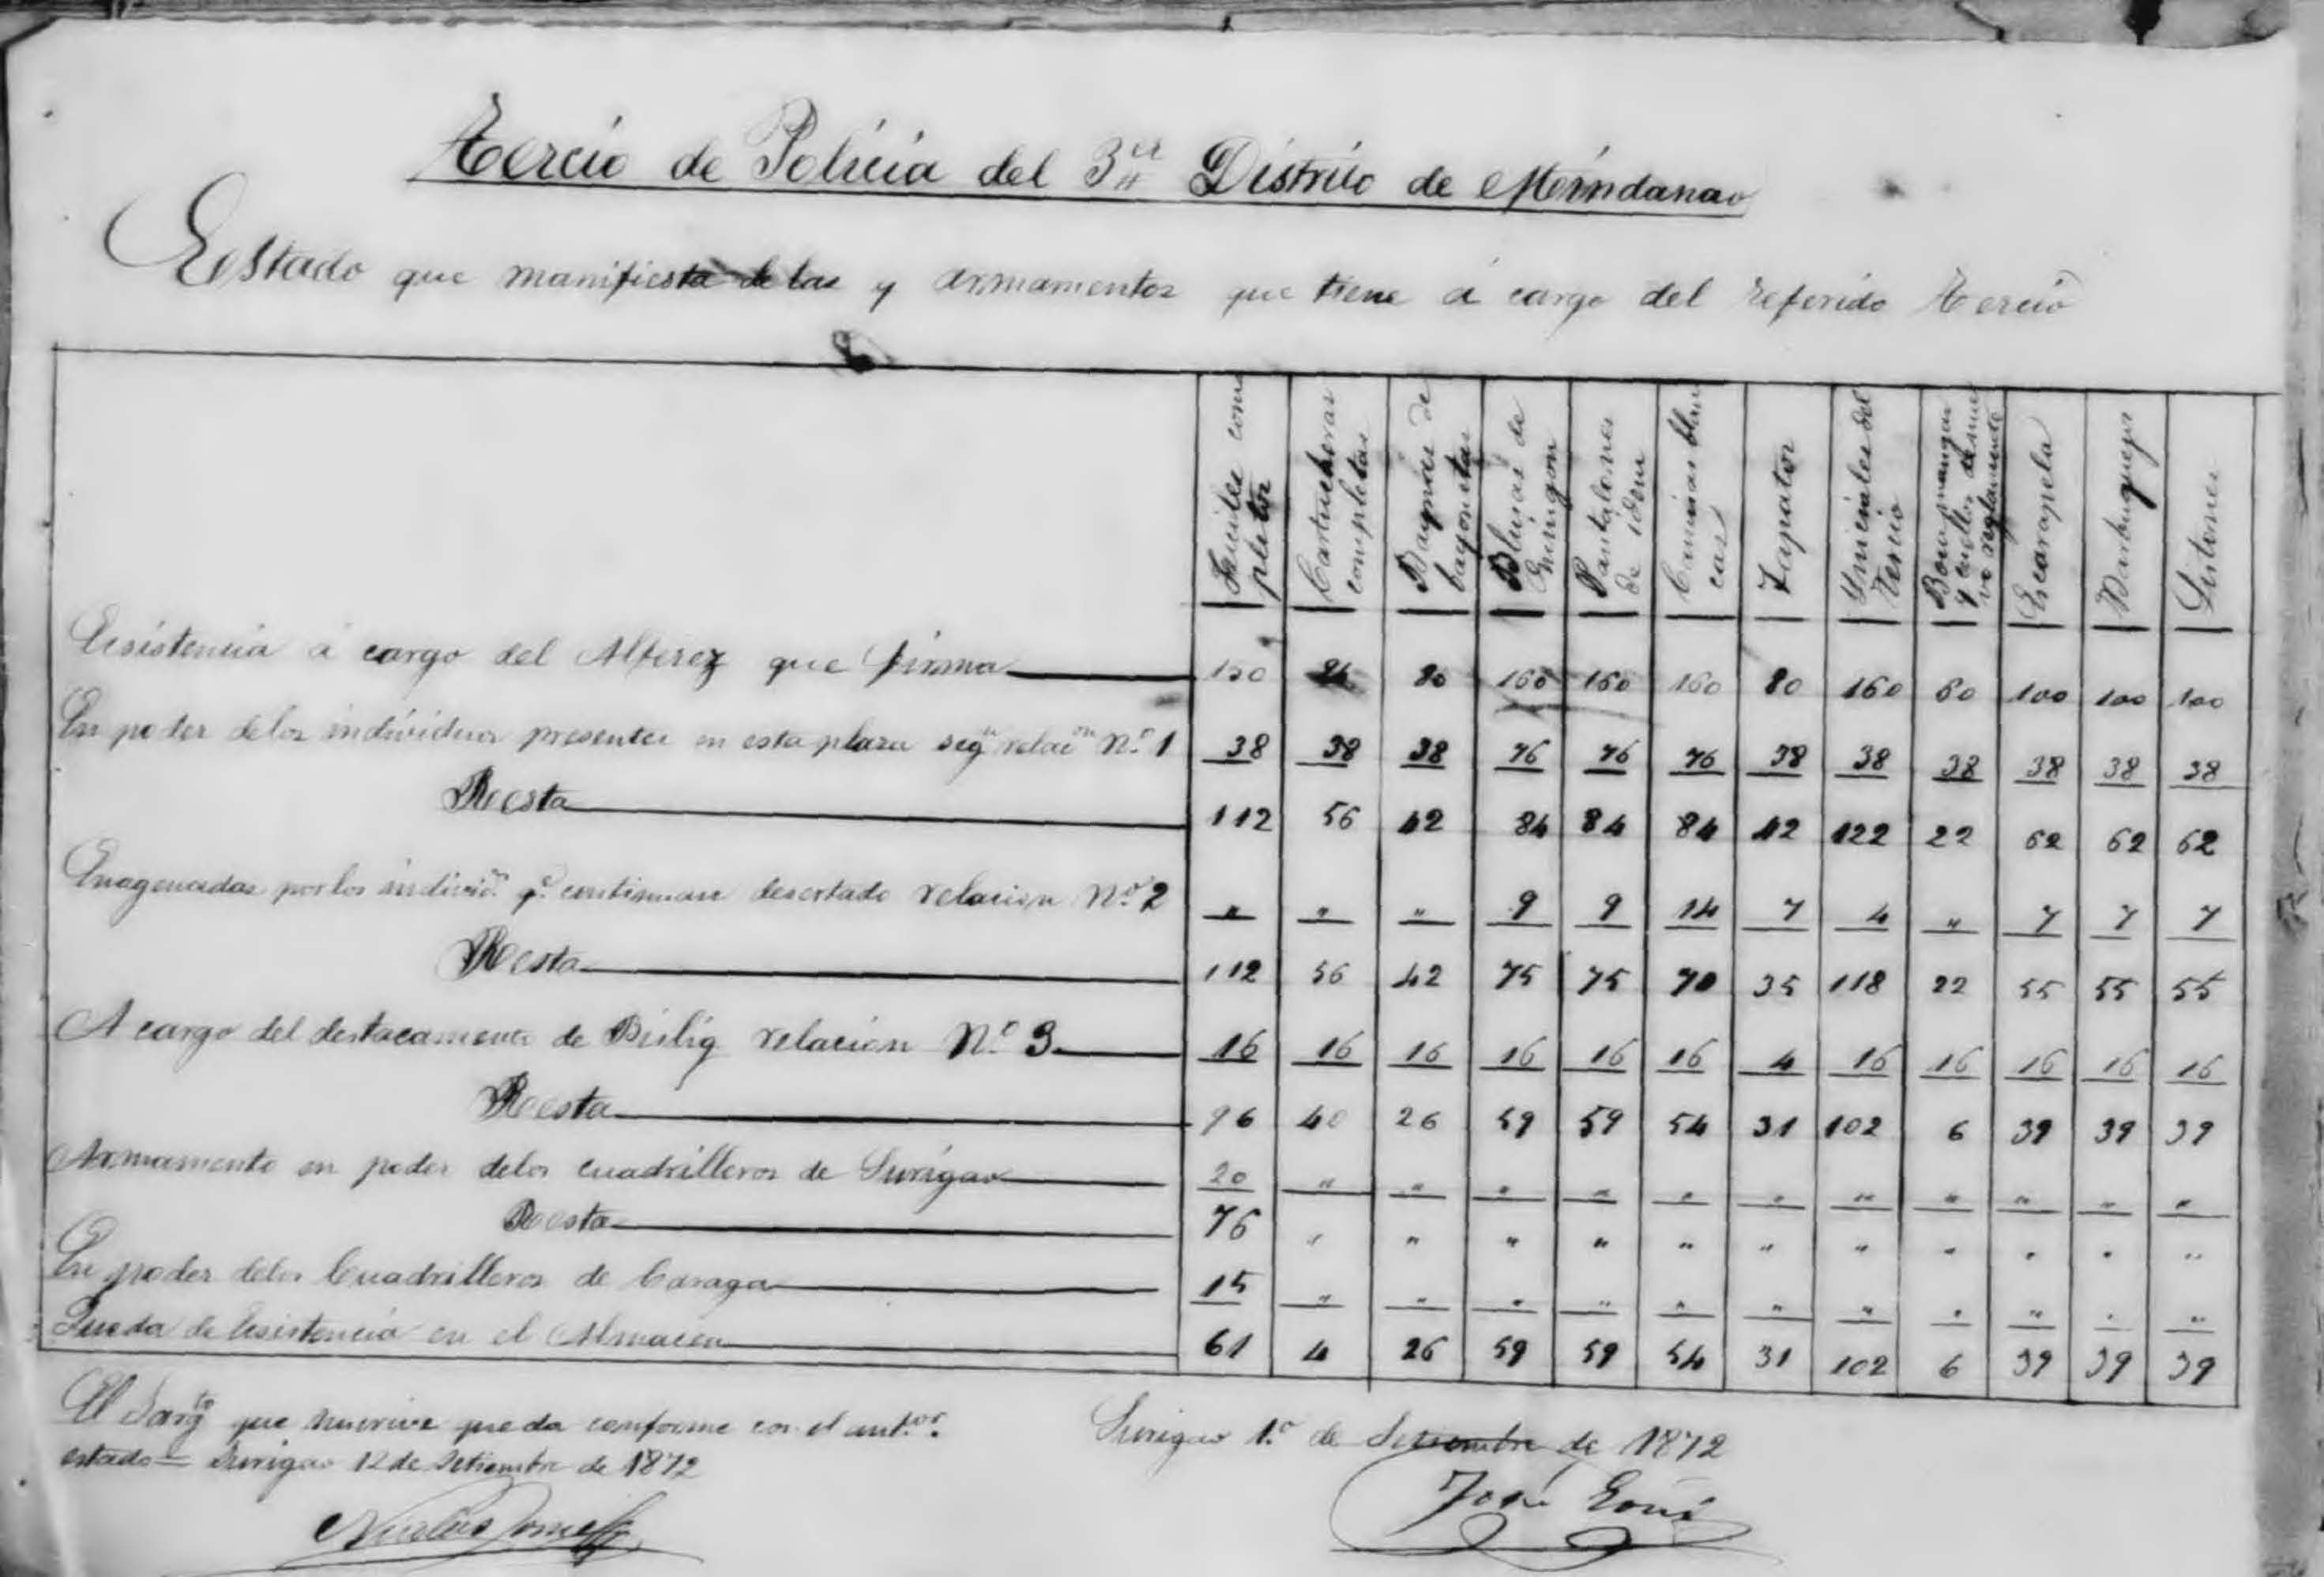 Tercio de Policia del 3er Distrito de Mindanao
Estado que manifiesta de las y armamentos que tiene á cargo del referido Tercio
Fusiles completos | Cartucheras completas | Baynas de bayonetas | Blusas de Guingon | Pantalones de idem | Camisas blancas | Zapatos | Yniciales del Tercio | Bocamangas y cuellos | Escarapela | Barbuquejos | Listones
Ecsistencia á cargo del Alferez que firma 150 80 160 160 160 80 160 60 100 100 100
En poder delos individuos presentes en esta plaza segn relacion No. 1 38 38 38 76 76 76 38 38 38 38 38 38
Resta 112 56 42 84 84 84 42 122 22 62 62 62
Enagenadas por los individs. qe. continuan desertado relacion No. 2 " " " 9 9 14 7 4 " 7 7 7
Resta 112 56 42 75 75 70 35 118 22 55 55 55
A cargo del destacamento de Bislig relacion No. 3 16 16 16 16 16 16 4 16 16 16 16 16
Resta 96 40 26 59 59 54 31 102 6 39 39 39
Armamento en poder delos cuadrilleros de Surigao 20 " " " " " " " " " " "
Resta 76 " " " " " " " " " " "
En poder delos Cuadrilleros de Caraga 15 " " " " " " " " " " "
Queda de Ecsistencia en el Almacen 61 4 26 59 59 54 31 102 6 39 39 39
El Sargto que suscrive queda conforme con el antor.
estado = Surigao 12 de Setiembre de 1872
Surigao 1.o de Setiembre de 1872
José